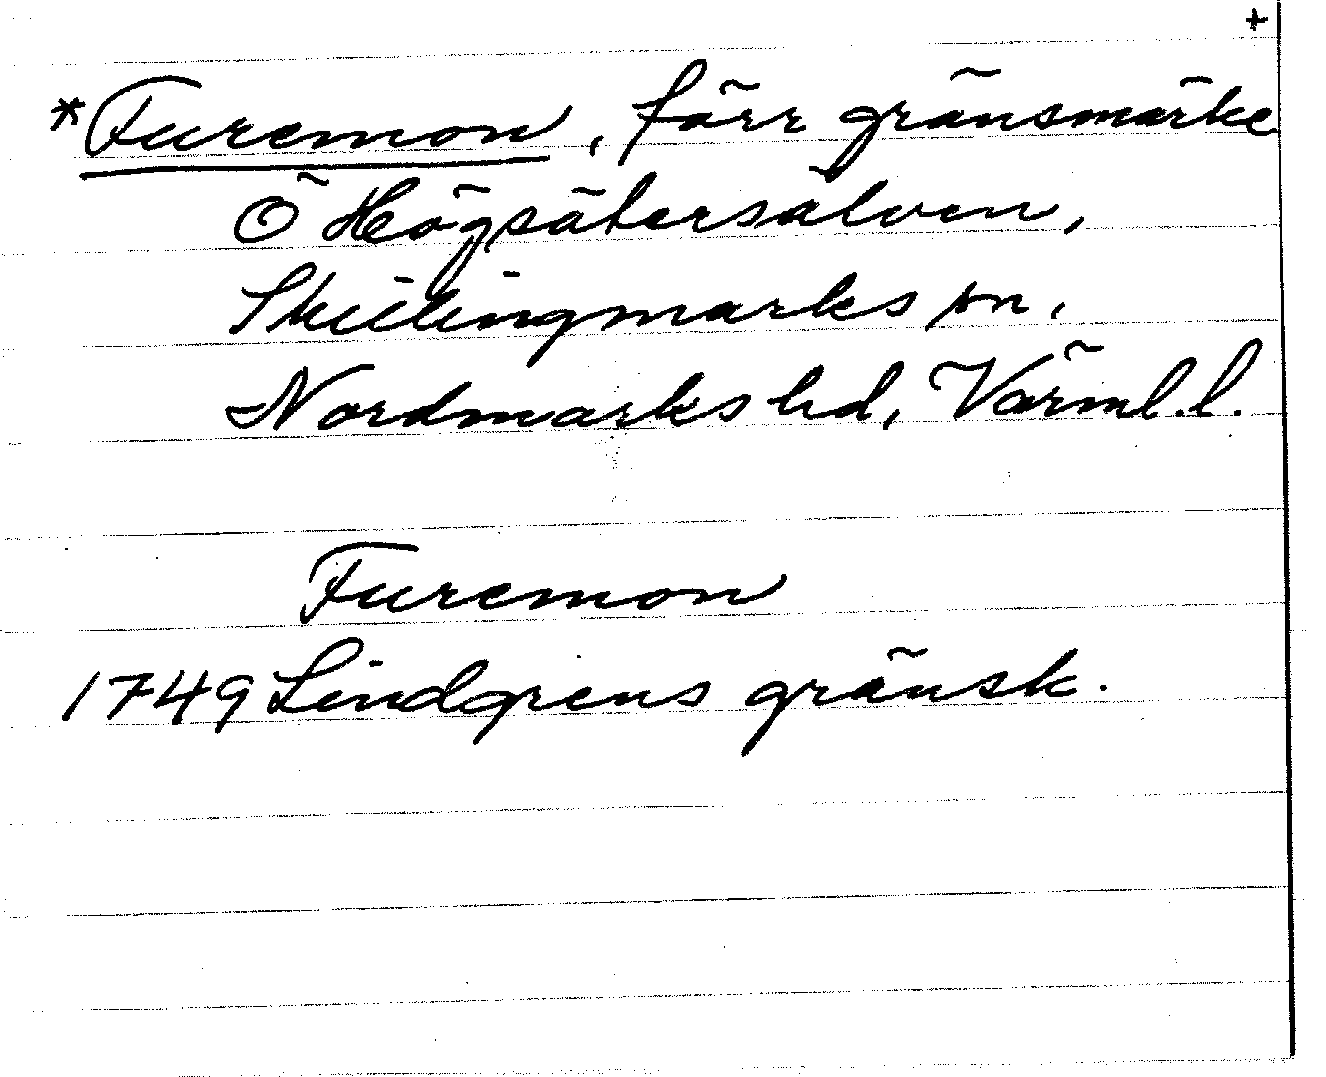 +
*Furemon, förr gränsmärke
Ö Högsätersälven,
Skillingmarks sn,
Nordmarks hd, Värml. l.
Furemon
1749 Lindgrens gränsk.